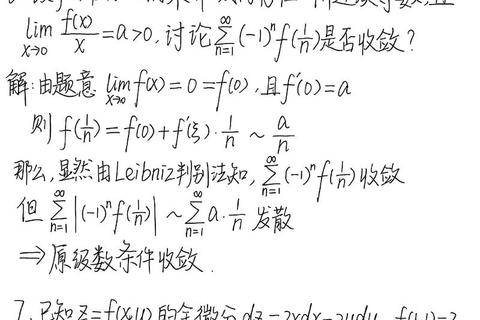 lim_{x→0} f(x)/x = a > 0, 讨论 ∑_{n=1}^{∞} (-1)^n f(1/n) 是否收敛?
解: 由题意 lim_{x→0} f(x) = 0 = f(0), 且 f'(0) = a
则 f(1/n) = f(0) + f'(ξ)·1/n ~ a/n
那么, 显然由Leibniz判别法知, ∑_{n=1}^{∞} (-1)^n f(1/n) 收敛
但 ∑_{n=1}^{∞} |(-1)^n f(1/n)| ~ ∑_{n=1}^{∞} a·1/n 发散
⇒ 原级数条件收敛.
7. 已知 z = f(x,y) 的全微分 dz = 2xdx - 2ydy